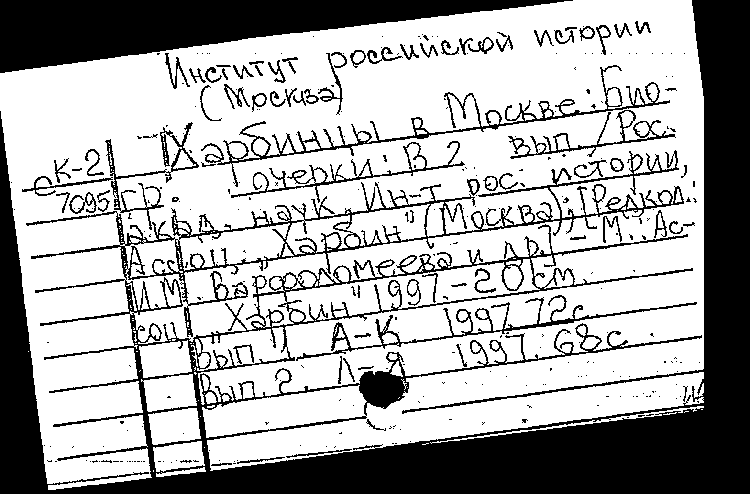 Институт российской истории
(Москва)
Харбинцы в Москве: Био-
гр. очерки: В 2 вып. / Рос.
акад. наук, Ин-т рос. истории,
Ассоц. „Харбин" (Москва); [Редкол.:
И.М. Варфоломеева и др.] – М.: Ас-
соц. „Харбин" 1997. – 20 см.
Вып. 1. А-К. 1997. 72 с
Вып. 2. Л-Я 1997. 68 с.
СК-2
7095